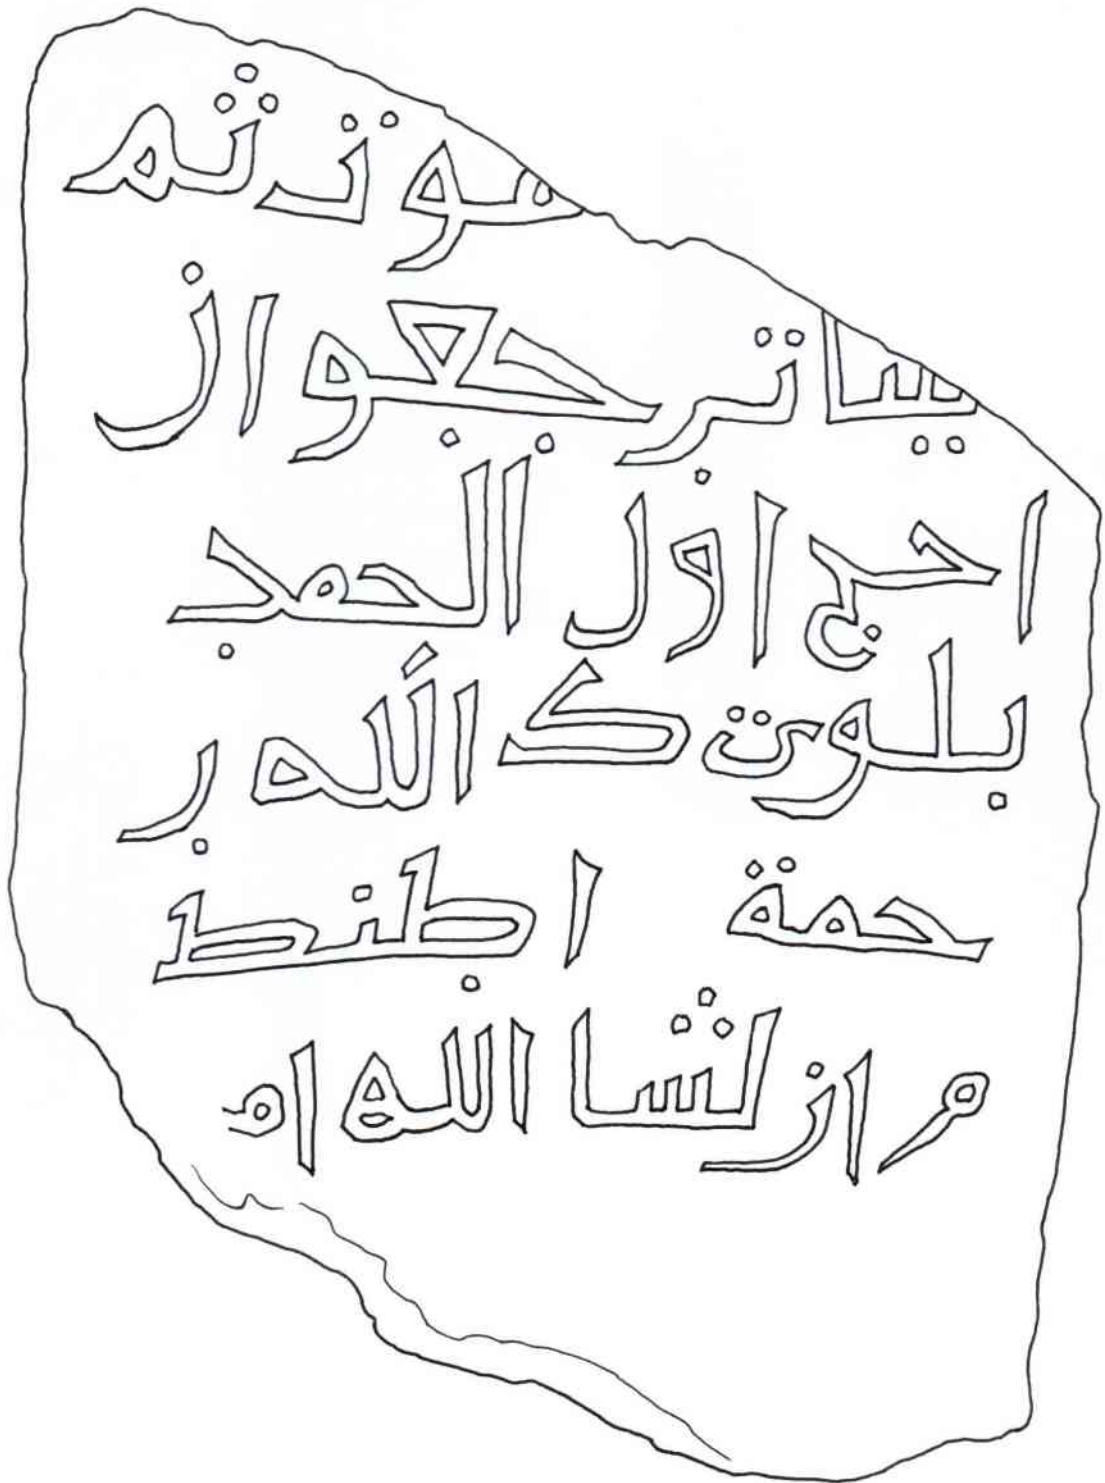 هو تد ثم
يسا تر جعو ان
ا حج اول الحمد
بلوت ك الله ر
حمة ا طنط
م ان لشا الله ام